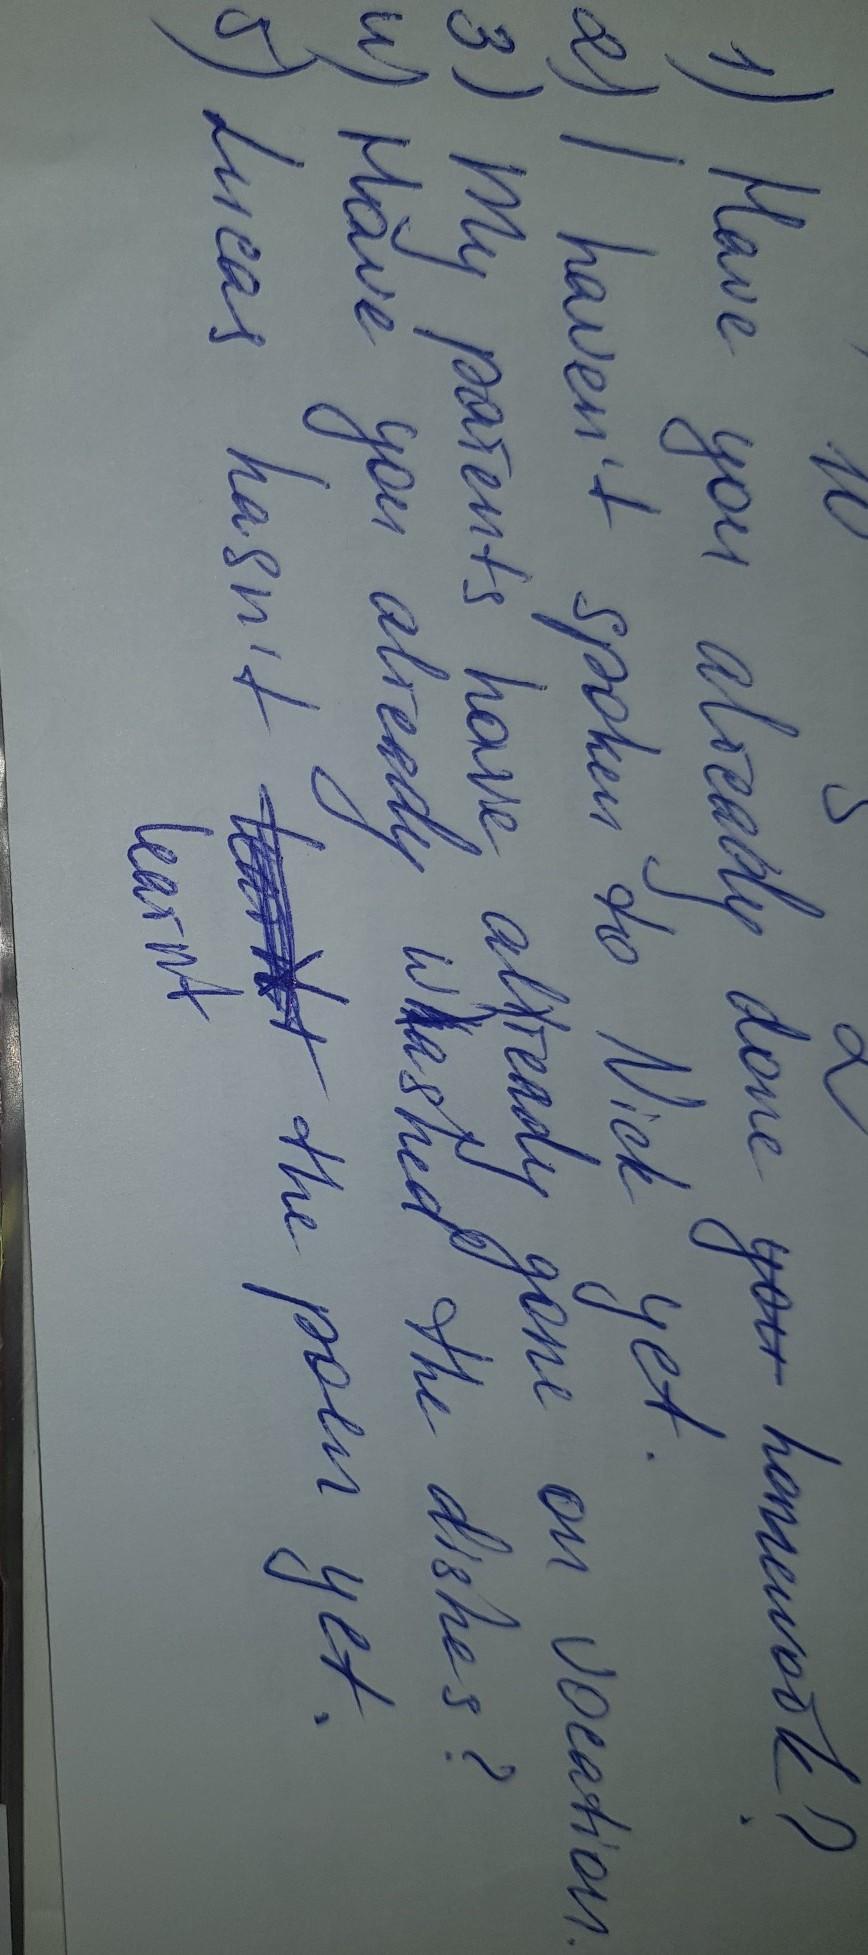 10 5 2
1) Have you already done your homework?
2) I haven't spoken to Nick yet.
3) My parents have already gone on vocation.
4) Have you already washed the dishes?
5) Lucas hasn't the poem yet.
learnt